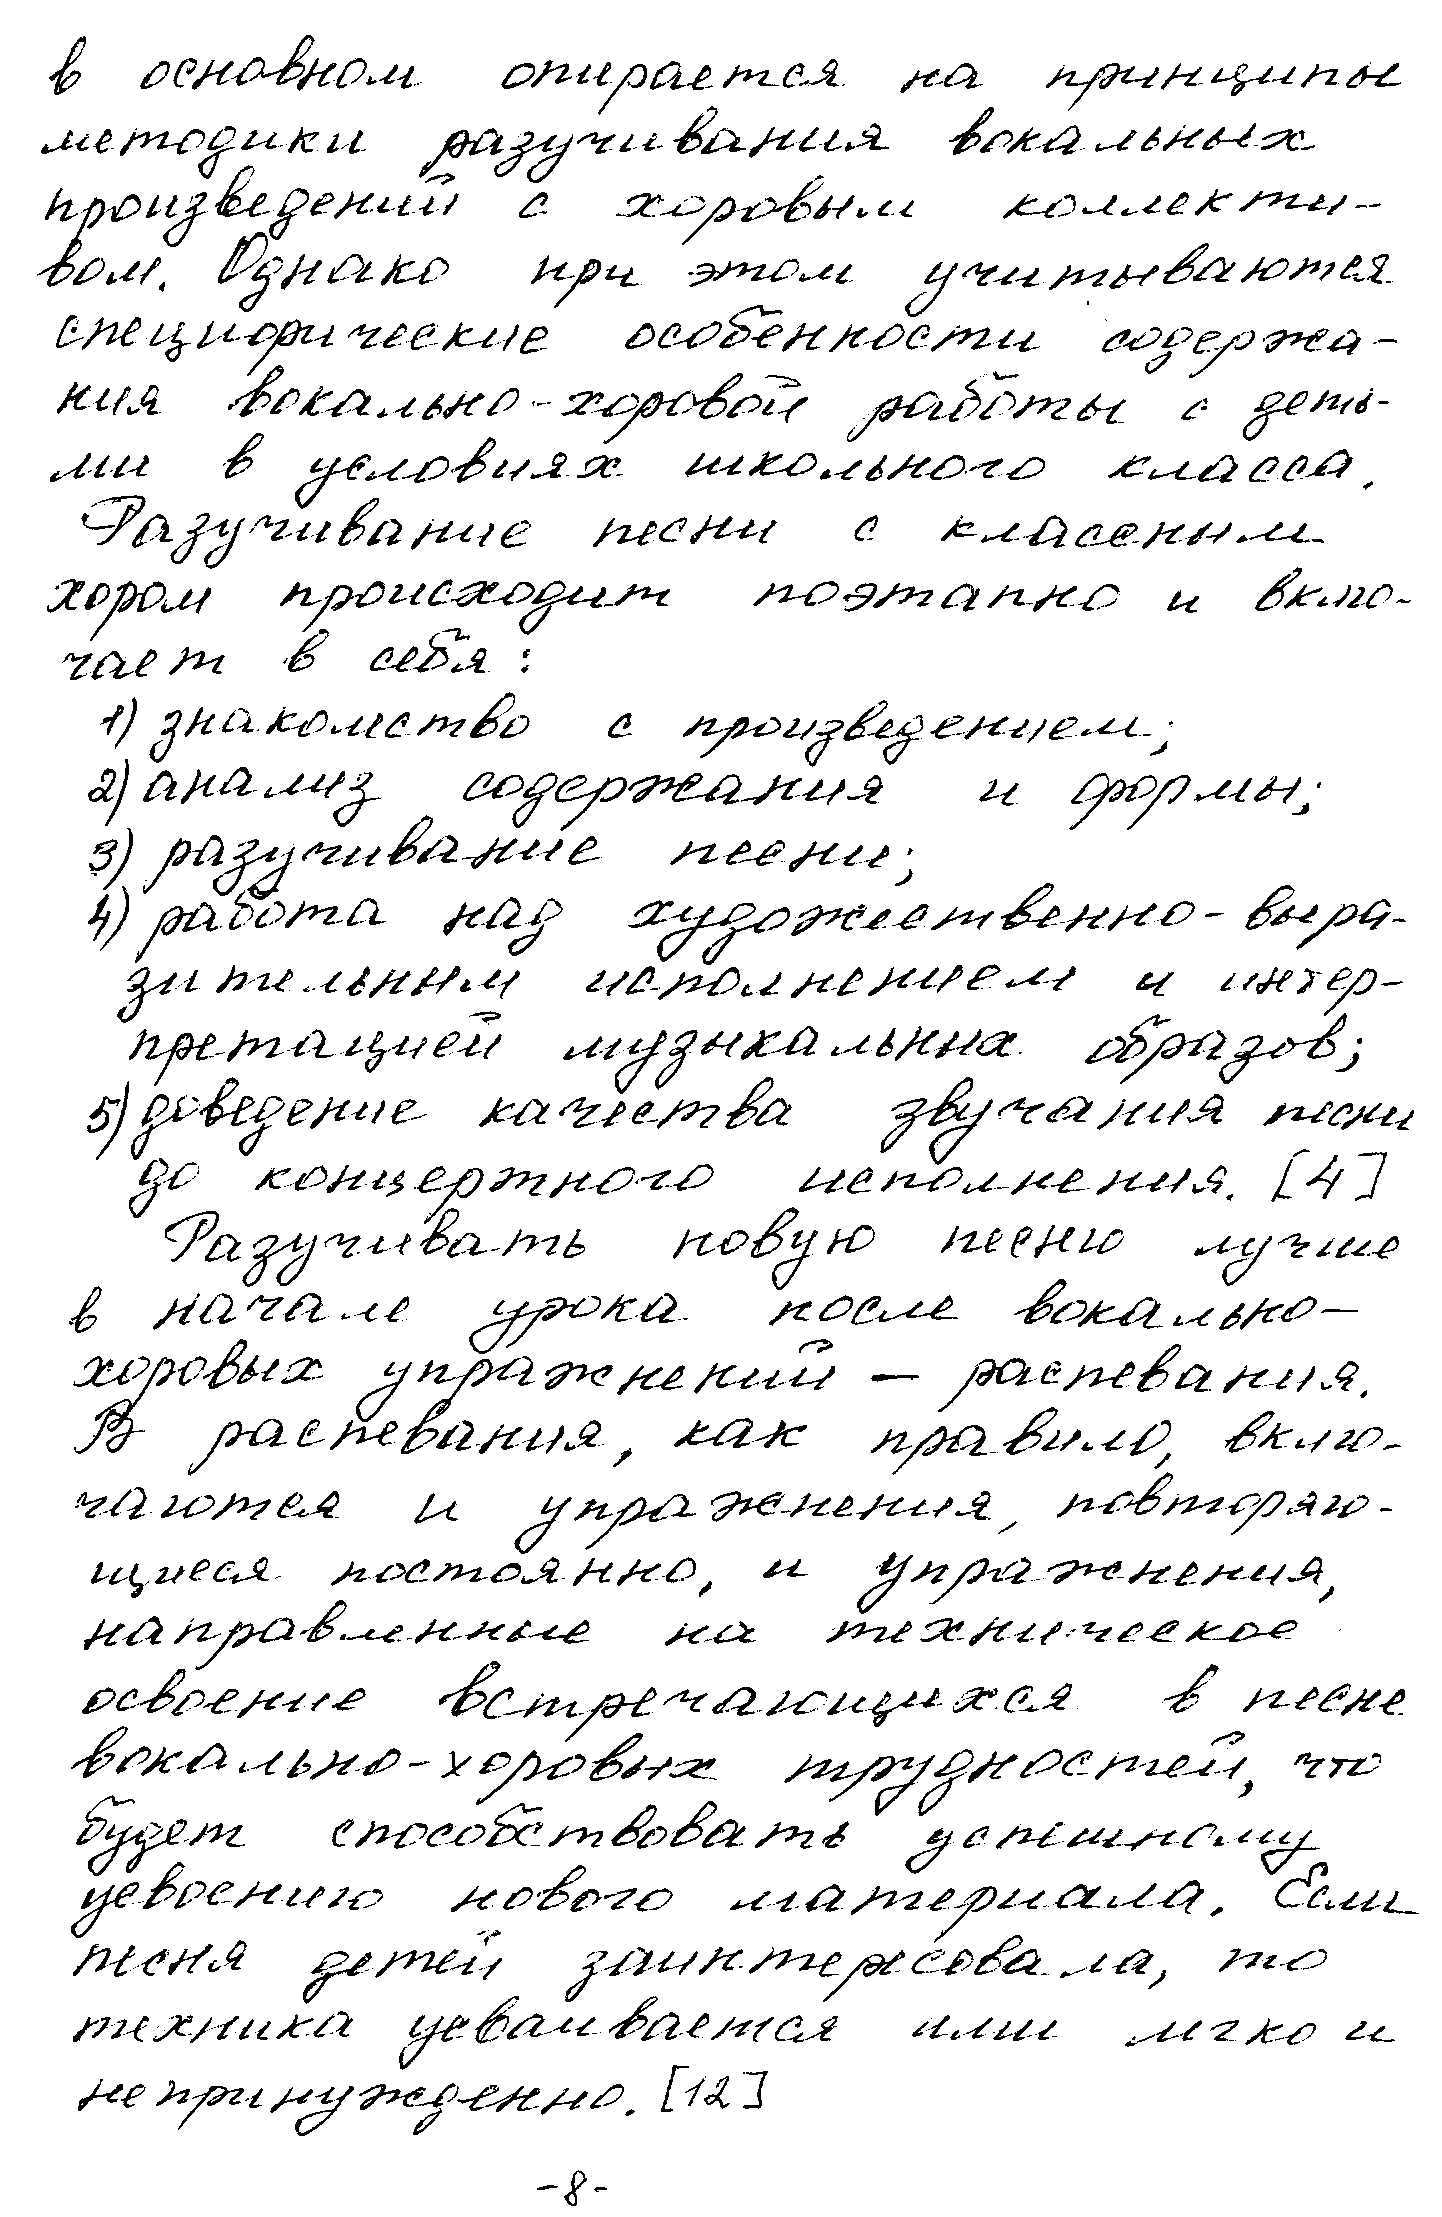 в основном опирается на принципы
методики разучивания вокальных
произведений с хоровым коллекти-
вом. Однако при этом учитываются
специфические особенности содержа-
ния вокально-хоровой работы с деть-
ми в условиях школьного класса.
Разучивание песни с классным
хором происходит поэтапно и вклю-
чает в себя:
1) знакомство с произведением;
2) анализ содержания и формы;
3) разучивание песни;
4) работа над художественно-выра-
зительным исполнением и интер-
претацией музыкальных образов;
5) доведение качества звучания песни
до концертного исполнения. [4]
Разучивать новую песню лучше
в начале урока после вокально-
хоровых упражнений — распевания.
В распевания, как правило, вклю-
чаются и упражнения, повторяю-
щиеся постоянно, и упражнения,
направленные на техническое
освоение встречающихся в песне
вокально-хоровых трудностей, что
будет способствовать успешному
усвоению нового материала. Если
песня детей заинтересовала, то
техника усваивается ими легко и
непринужденно. [12]
-8-